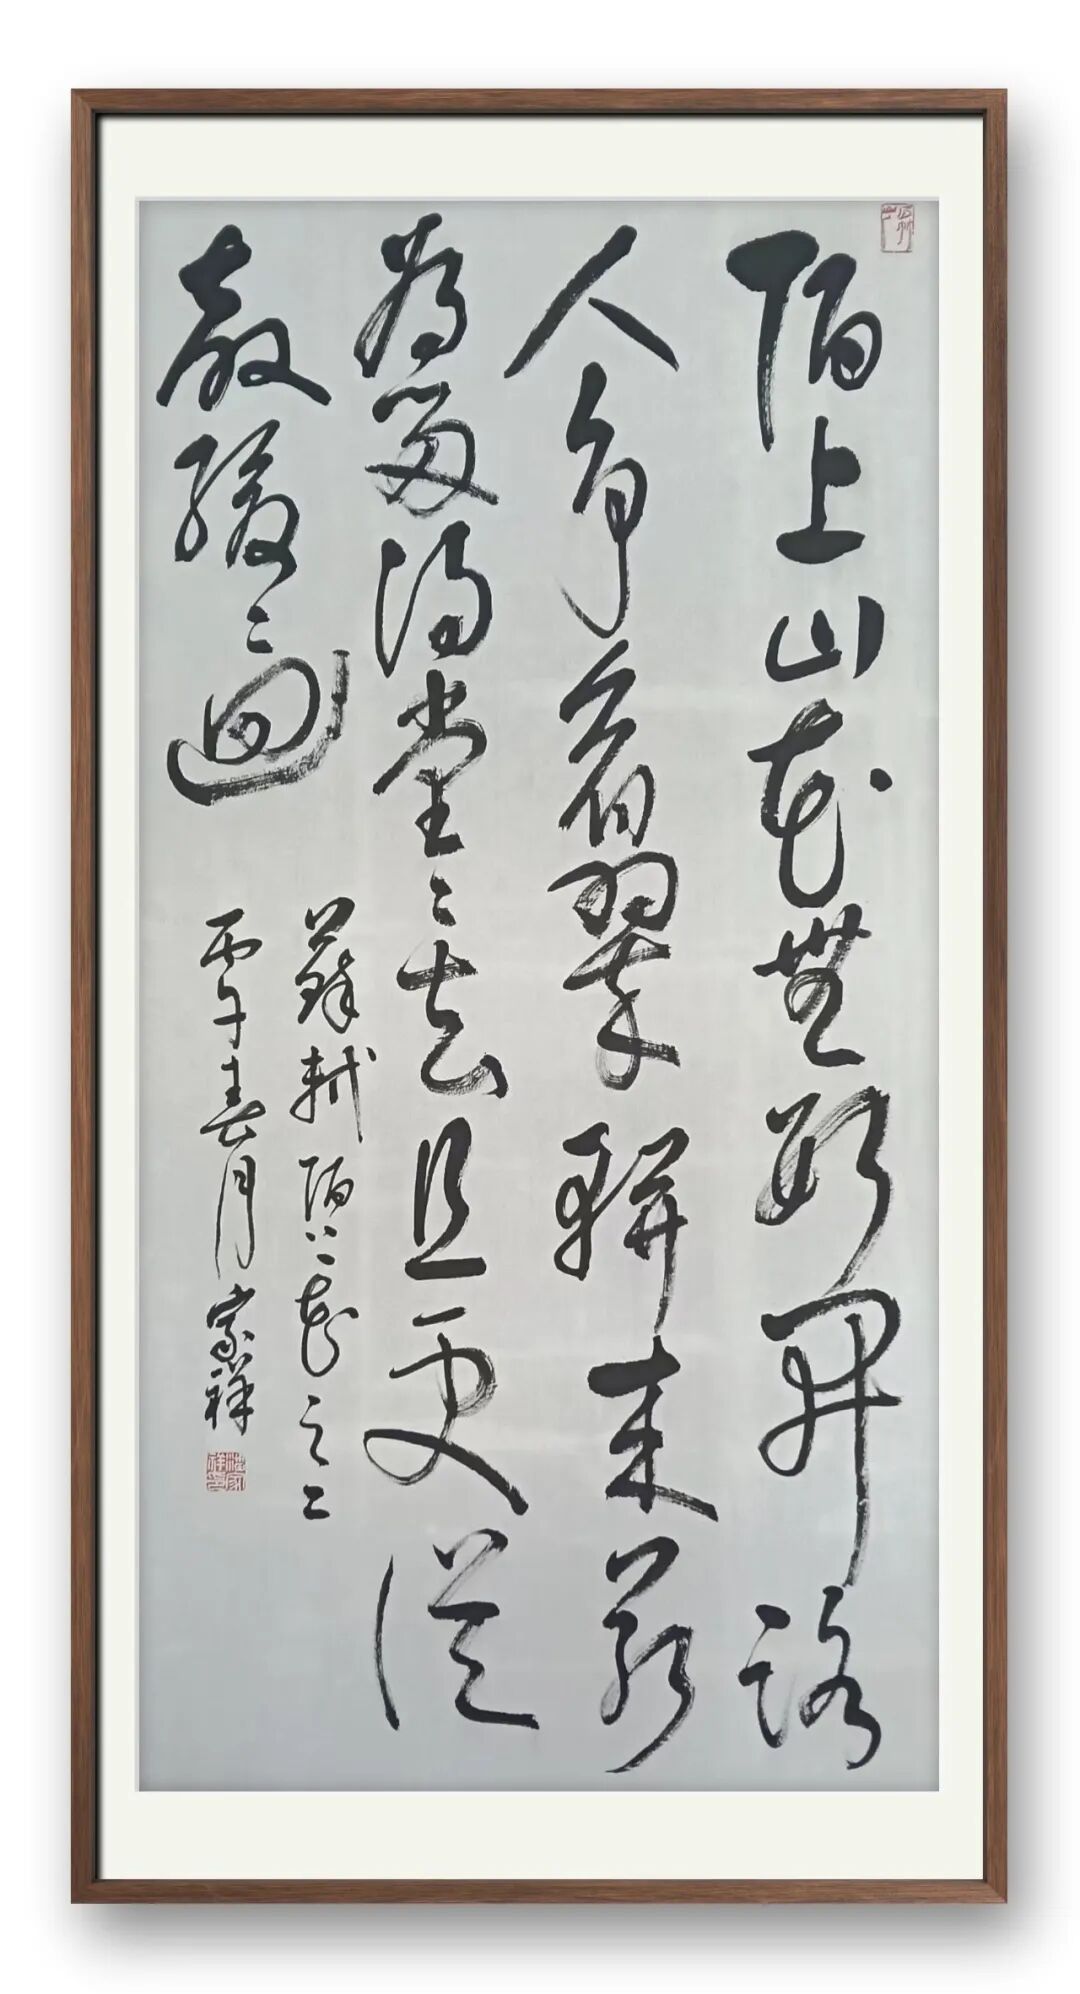 陌上山花無數開路
人爭看翠軿來若
為留得堂〻去且更從
教緩〻迴
蘇軾陌上花之二
丙午春月家祥